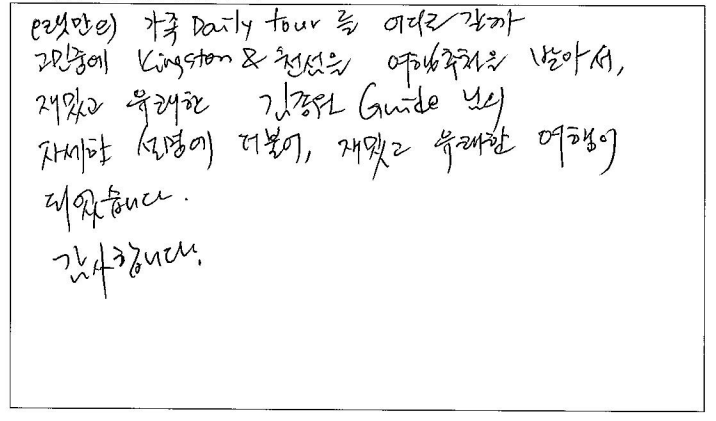 오랫만의 가족 Daily tour 를 어디로 갈까
고민중에 Kingston & 천섬을 여행추천을 받아서,
재밌고 유쾌한 김종원 Guide 님의
자세한 설명에 더불어, 재밌고 유쾌한 여행이
되었습니다.
감사합니다.